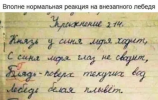 Вполне нормальная реакция на внезапного лебедя
Упражнение 214.
Князь у синя моря ходит,
С синя моря глаз не сводит,
Глядь-поверх текучих вод
Лебедь белая плывёт.